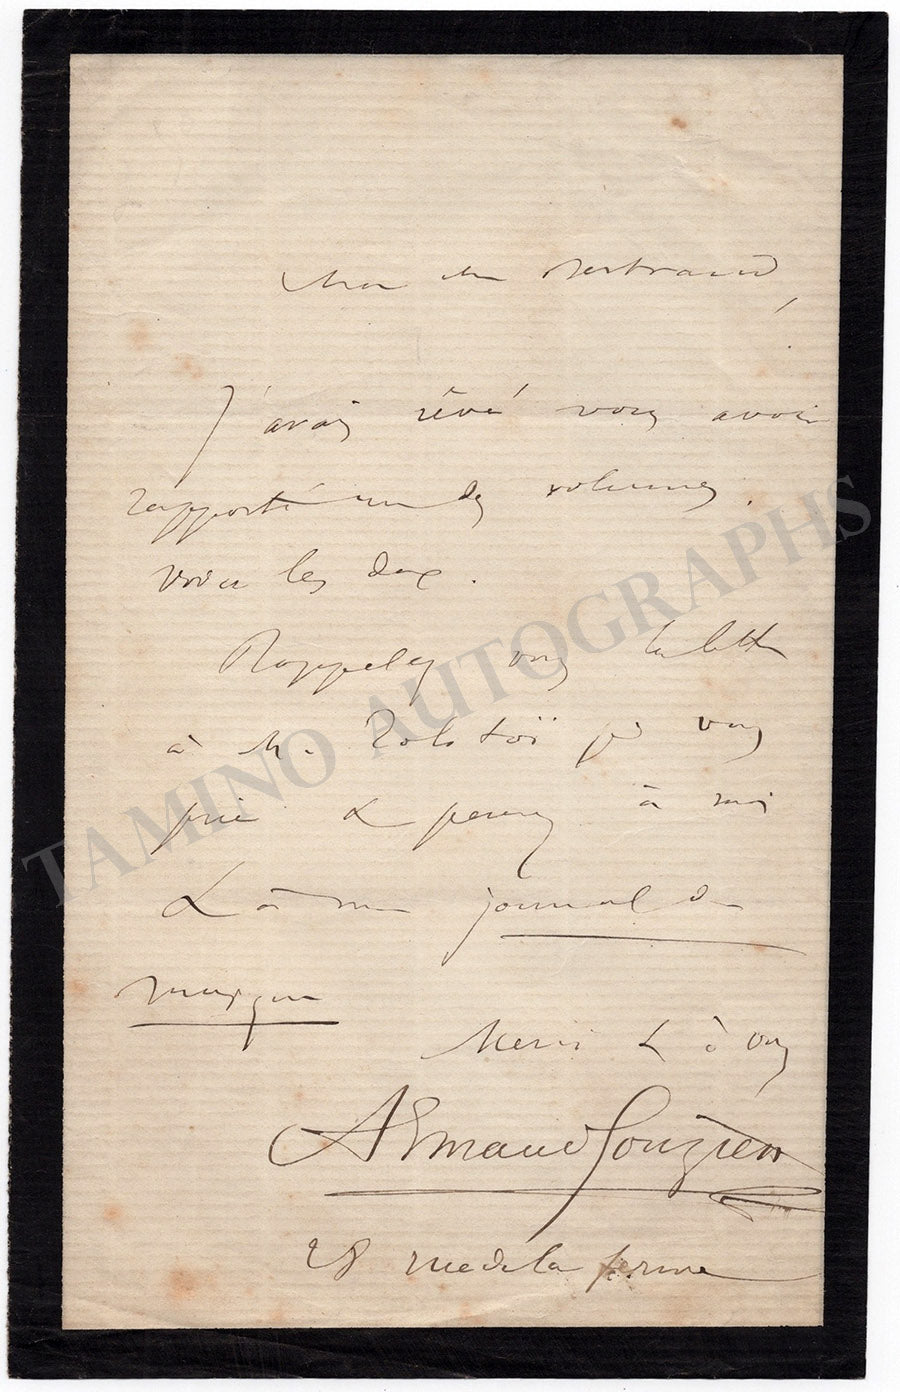 Mon cher Bertrand,
J'avais rêvé vous avoir
rapporté un des volumes.
voici les deux.
Rappelez vous la lettre
à M. Tolstoï je vous
prie & pensez à moi
& à mon journal de
musique
Merci & à vous
Armand Gouzien
28 rue de la ferme
TAMINO AUTOGRAPHS